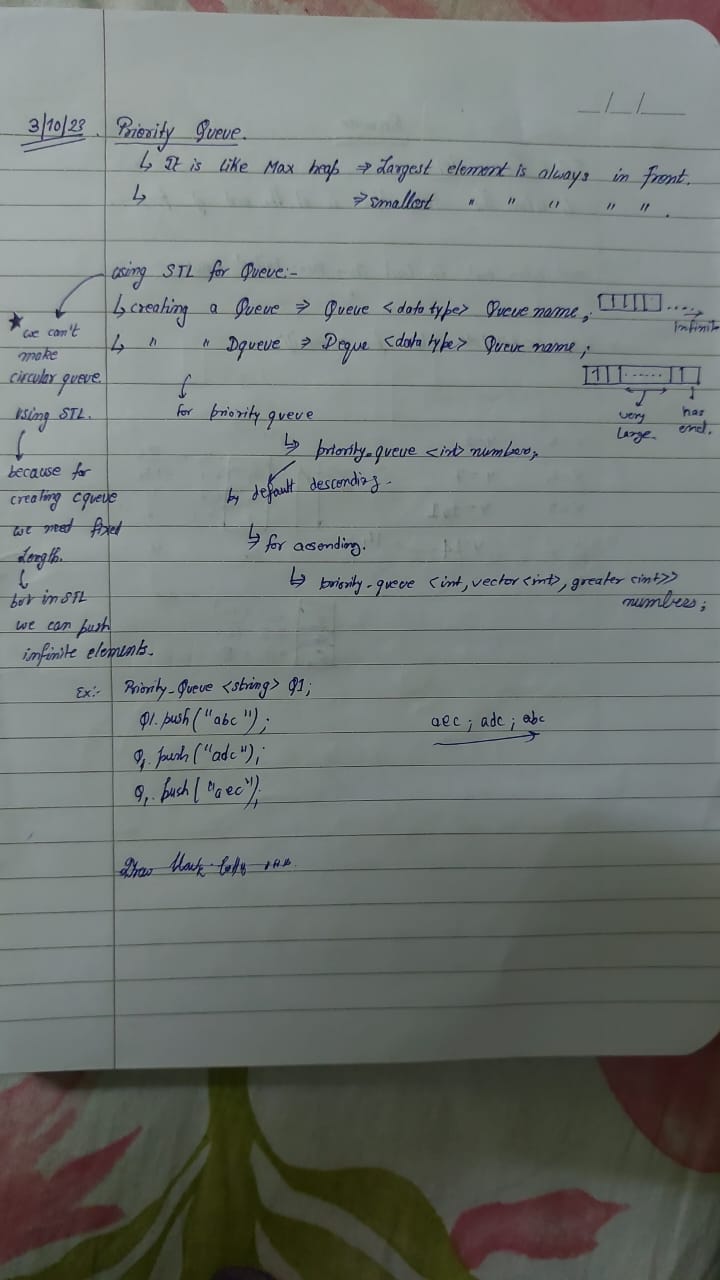 _/_/_
3/10/23. Priority Queue.
↳ It is like Max heap ⇒ Largest element is always in front.
↳ ⇒ smallest " " " " " .
using STL for Queue:-
↳ creating a Queue ⇒ Queue <data type> Queue name;
infinite
↳ " " Dqueue ⇒ Deque <data type> Queue name;
very large.
has end.
★ we can't
make
circular queue
using STL.
because for
creating cqueue
we need fixed
length.
but in STL
we can push
infinite elements.
for priority queue
↳ priority-queue <int> numbers;
by default descending.
↳ for acsending.
↳ priority-queue <int, vector<int>, greater <int>>
numbers;
Ex:- Priority-Queue <string> Q1;
Q1.push("abc");
Q1.push("adc");
Q1.push("aec");
aec ; adc ; abc